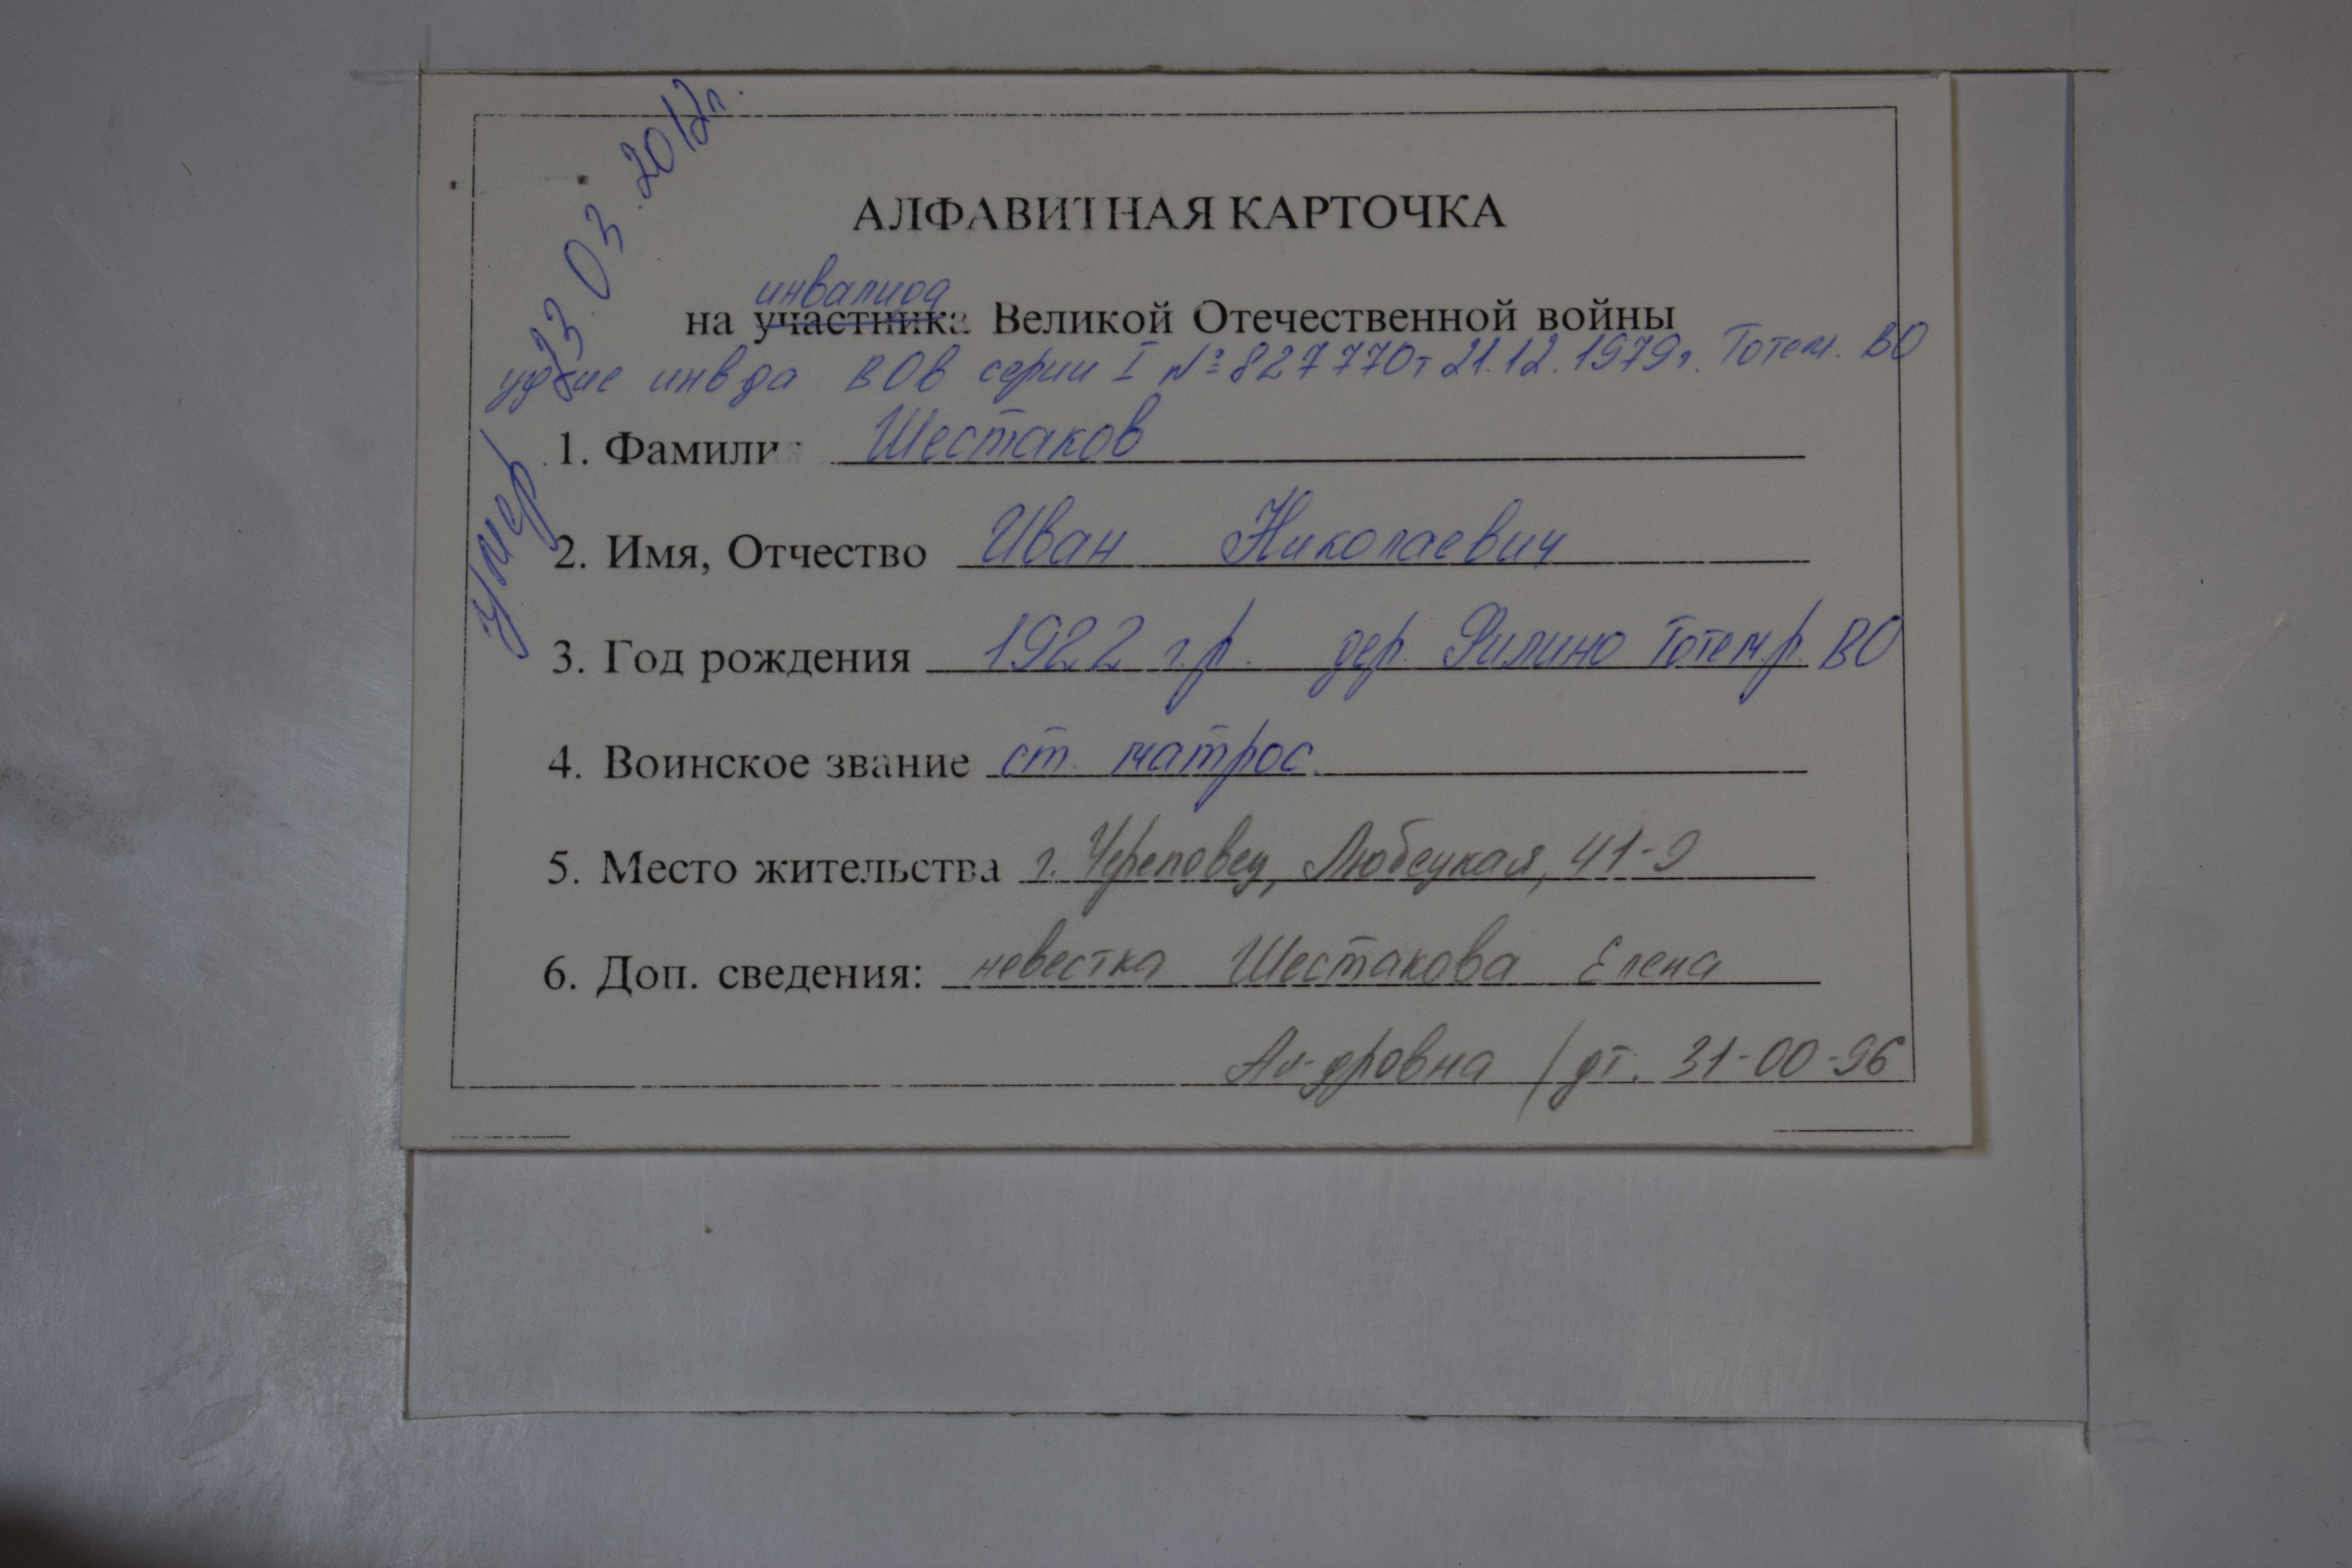 умер 23.03.2012г.
АЛФАВИТНАЯ КАРТОЧКА
инвалида
на участника Великой Отечественной войны
уд-ие инв-да ВОв серии I № 827770 от 21.12.1979г. Тотем. ВО
1. Фамилия Шестаков
2. Имя, Отчество Иван Николаевич
3. Год рождения 1922 г.р. дер. Филино Тотем.р. ВО
4. Воинское звание ст. матрос.
5. Место жительства г. Череповец, Любецкая, 41-9
6. Доп. сведения: невестка Шестакова Елена
Ал-дровна /дт. 31-00-96